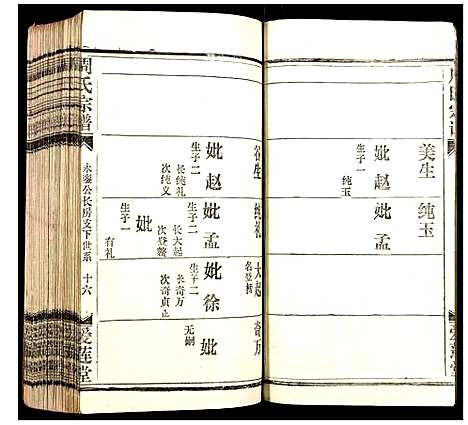 美生
妣赵
生子一
纯玉
纯玉
妣孟
谷生
妣赵
生子二
长纯礼
次纯义
纯礼
妣孟
生子二
长大起
次登鳌
妣
生子一
有礼
大起
妣徐
生子二
长寄万
次寄贞止
寄万
妣
无嗣
周氏宗谱
永泰公长房支下世系
十六
爱莲堂